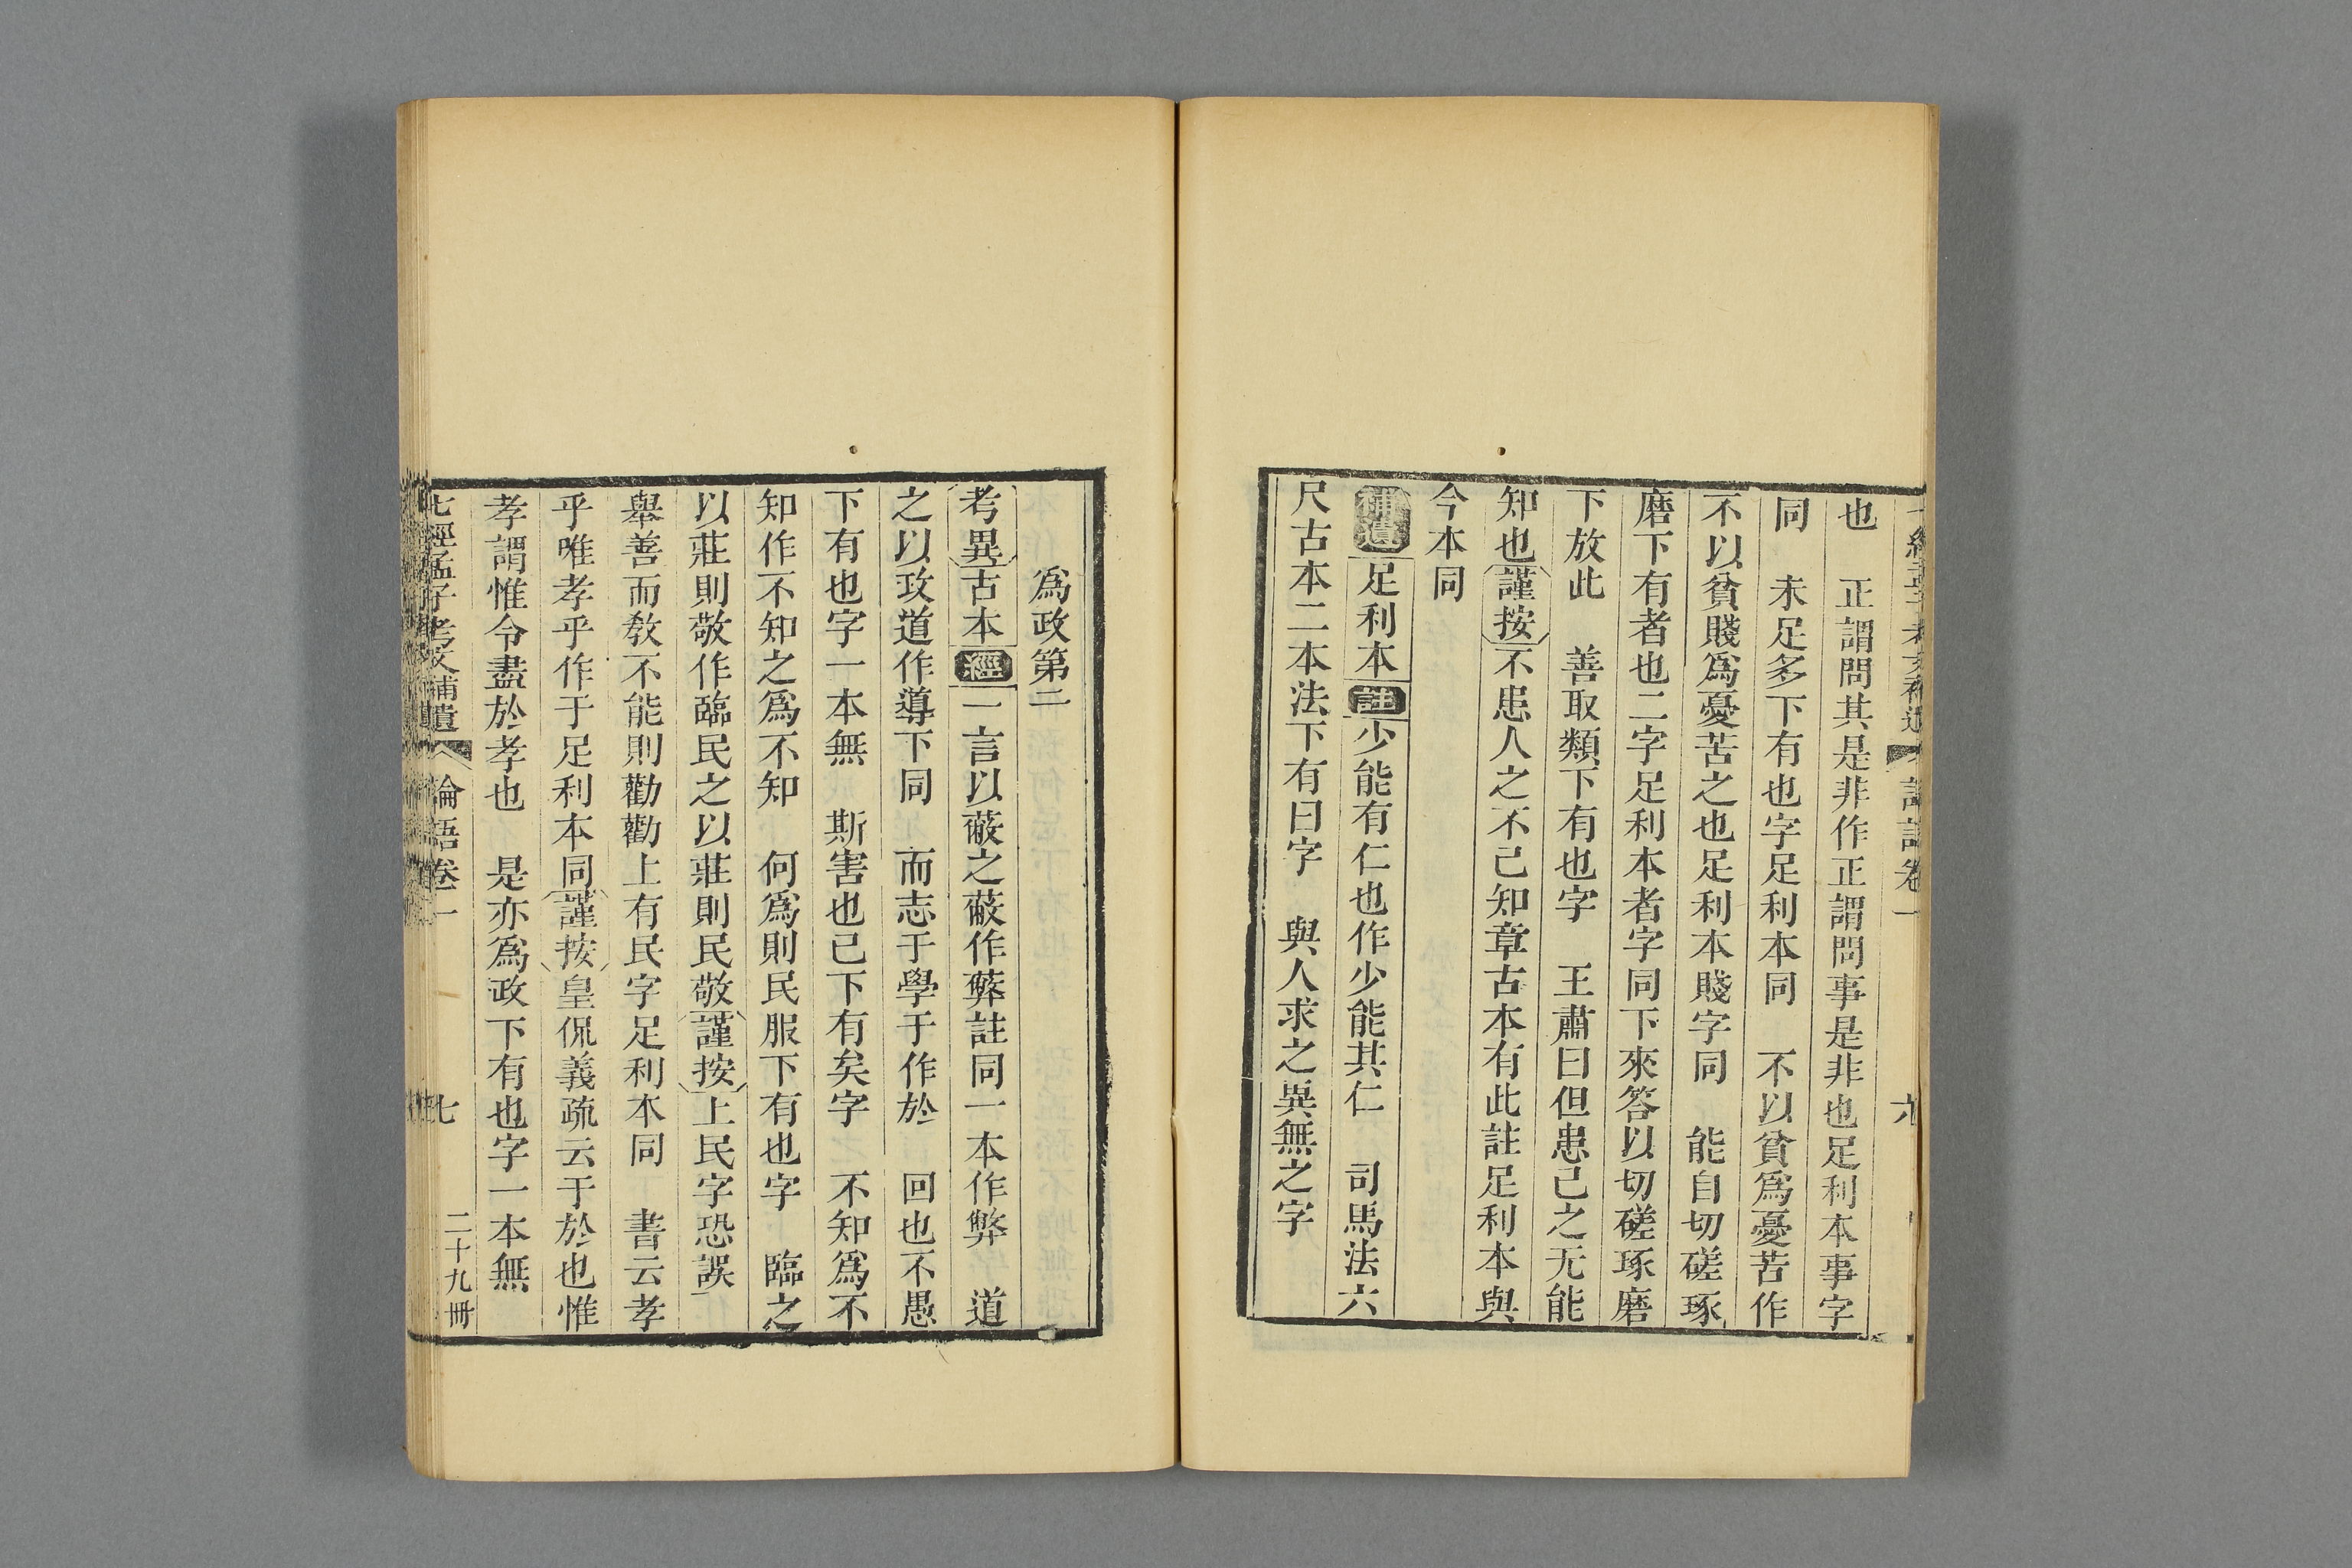 也　正謂問其是非作正謂問事是非也足利本事字
同　未足多下有也字足利本同　不以貧爲憂苦作
不以貧賤爲憂苦之也足利本賤字同　能自切磋琢
磨下有者也二字足利本者字同下來答以切磋琢磨
下放此　善取類下有也字　王肅曰但患己之无能
知也謹按不患人之不己知章古本有此註足利本與
今本同
補遺足利本註少能有仁也作少能其仁　司馬法六
尺古本二本法下有曰字　與人求之異無之字
爲政第二
考異古本經一言以蔽之蔽作弊註同一本作弊　道
之以政道作導下同　而志于學于作於　回也不愚
下有也字一本無　斯害也已下有矣字　不知爲不
知作不知之爲不知　何爲則民服下有也字　臨之
以莊則敬作臨民之以莊則民敬謹按上民字恐誤
舉善而教不能則勸勸上有民字足利本同　書云孝
乎唯孝乎作于足利本同謹按皇侃義疏云于於也惟
孝謂惟令盡於孝也　是亦爲政下有也字一本無
七經孟子考文補遺　論語卷一　七　二十九冊